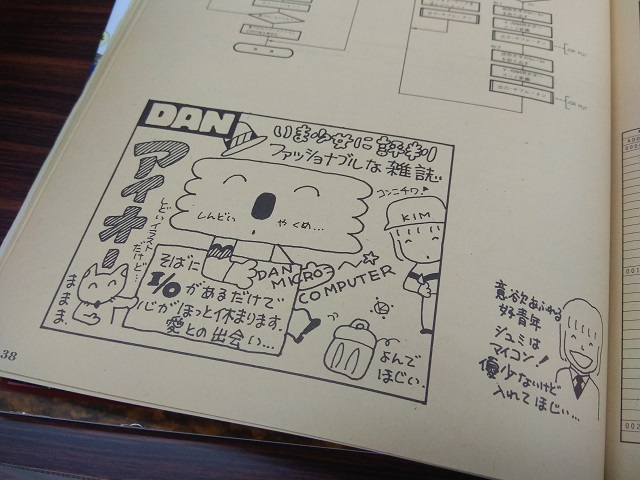 DAN
アイオー
いま少女に評判
ファッショナブルな雑誌。
コンニチワ!
KIM
しんどい
やくめ…
しどいイラスト
だけど…
ままま.
そばに
I/Oがあるだけで
心がほっと休まります.
愛との出会い…
DAN
MICRO
COMPUTER
よんで
ほしい.
意欲あふれる
好青年
シュミは
マイコン!
優少ないけど
入れてほしい…
38